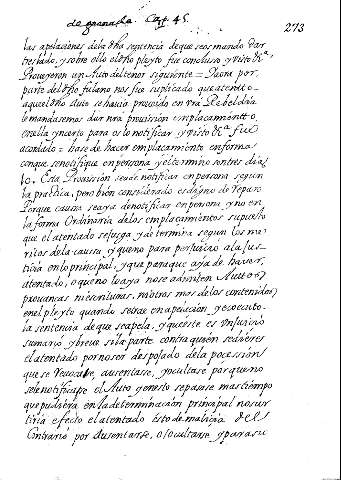 de granada Cap. 45.
273
las apelaciones dela dha sentencia de que seos mando dar
treslado, y sobre ello el dho pleyto fue concluso y visto &a,
Proveyeron un Auto del tenor siguiente = Y aora por
parte del dho fulano nos fue suplicado que atento =
aquel dho Juiz se havia proveido en vra Rebeldia
lemandasemos dar nra provision emplacamiento
enella ynserto para os lo notificar y visto &a fue
acordado = hase de hacer emplacamiento en forma
conque se notifique en persona y el termino son tres dias
Esta Provision se ade notificar en persona segun
la practica, pero bien considerado es digno de reparo
Porque causa se aya de notificar en persona, y no en
la forma Ordinaria delos emplacamientos supuesto
que el atentado se juzga y determina segun los me
ritos dela causa y que no para perjuicio ala Jus
ticia en lo principal, y que para que aya de haver
atentado, o que no lo aya no se admiten Autos
provancas ni escrituras, mientras mas delos contenidos
en el pleyto quando se trae en apelacion y executo
la sentencia de que se apela, y que este es un Juicio
sumario y breve si la parte contra quien se adverse
el atentado por no ser despojado dela posession
que se Revocase, ausentase, y ocultase porque no
sele notificase el Auto y en esto se pasase mas tiempo
que pudiera en la determinacion principal no sur
tiria efecto el atentado Esto de malicia del
Contrario por Ausentarse, o locultarse y para su